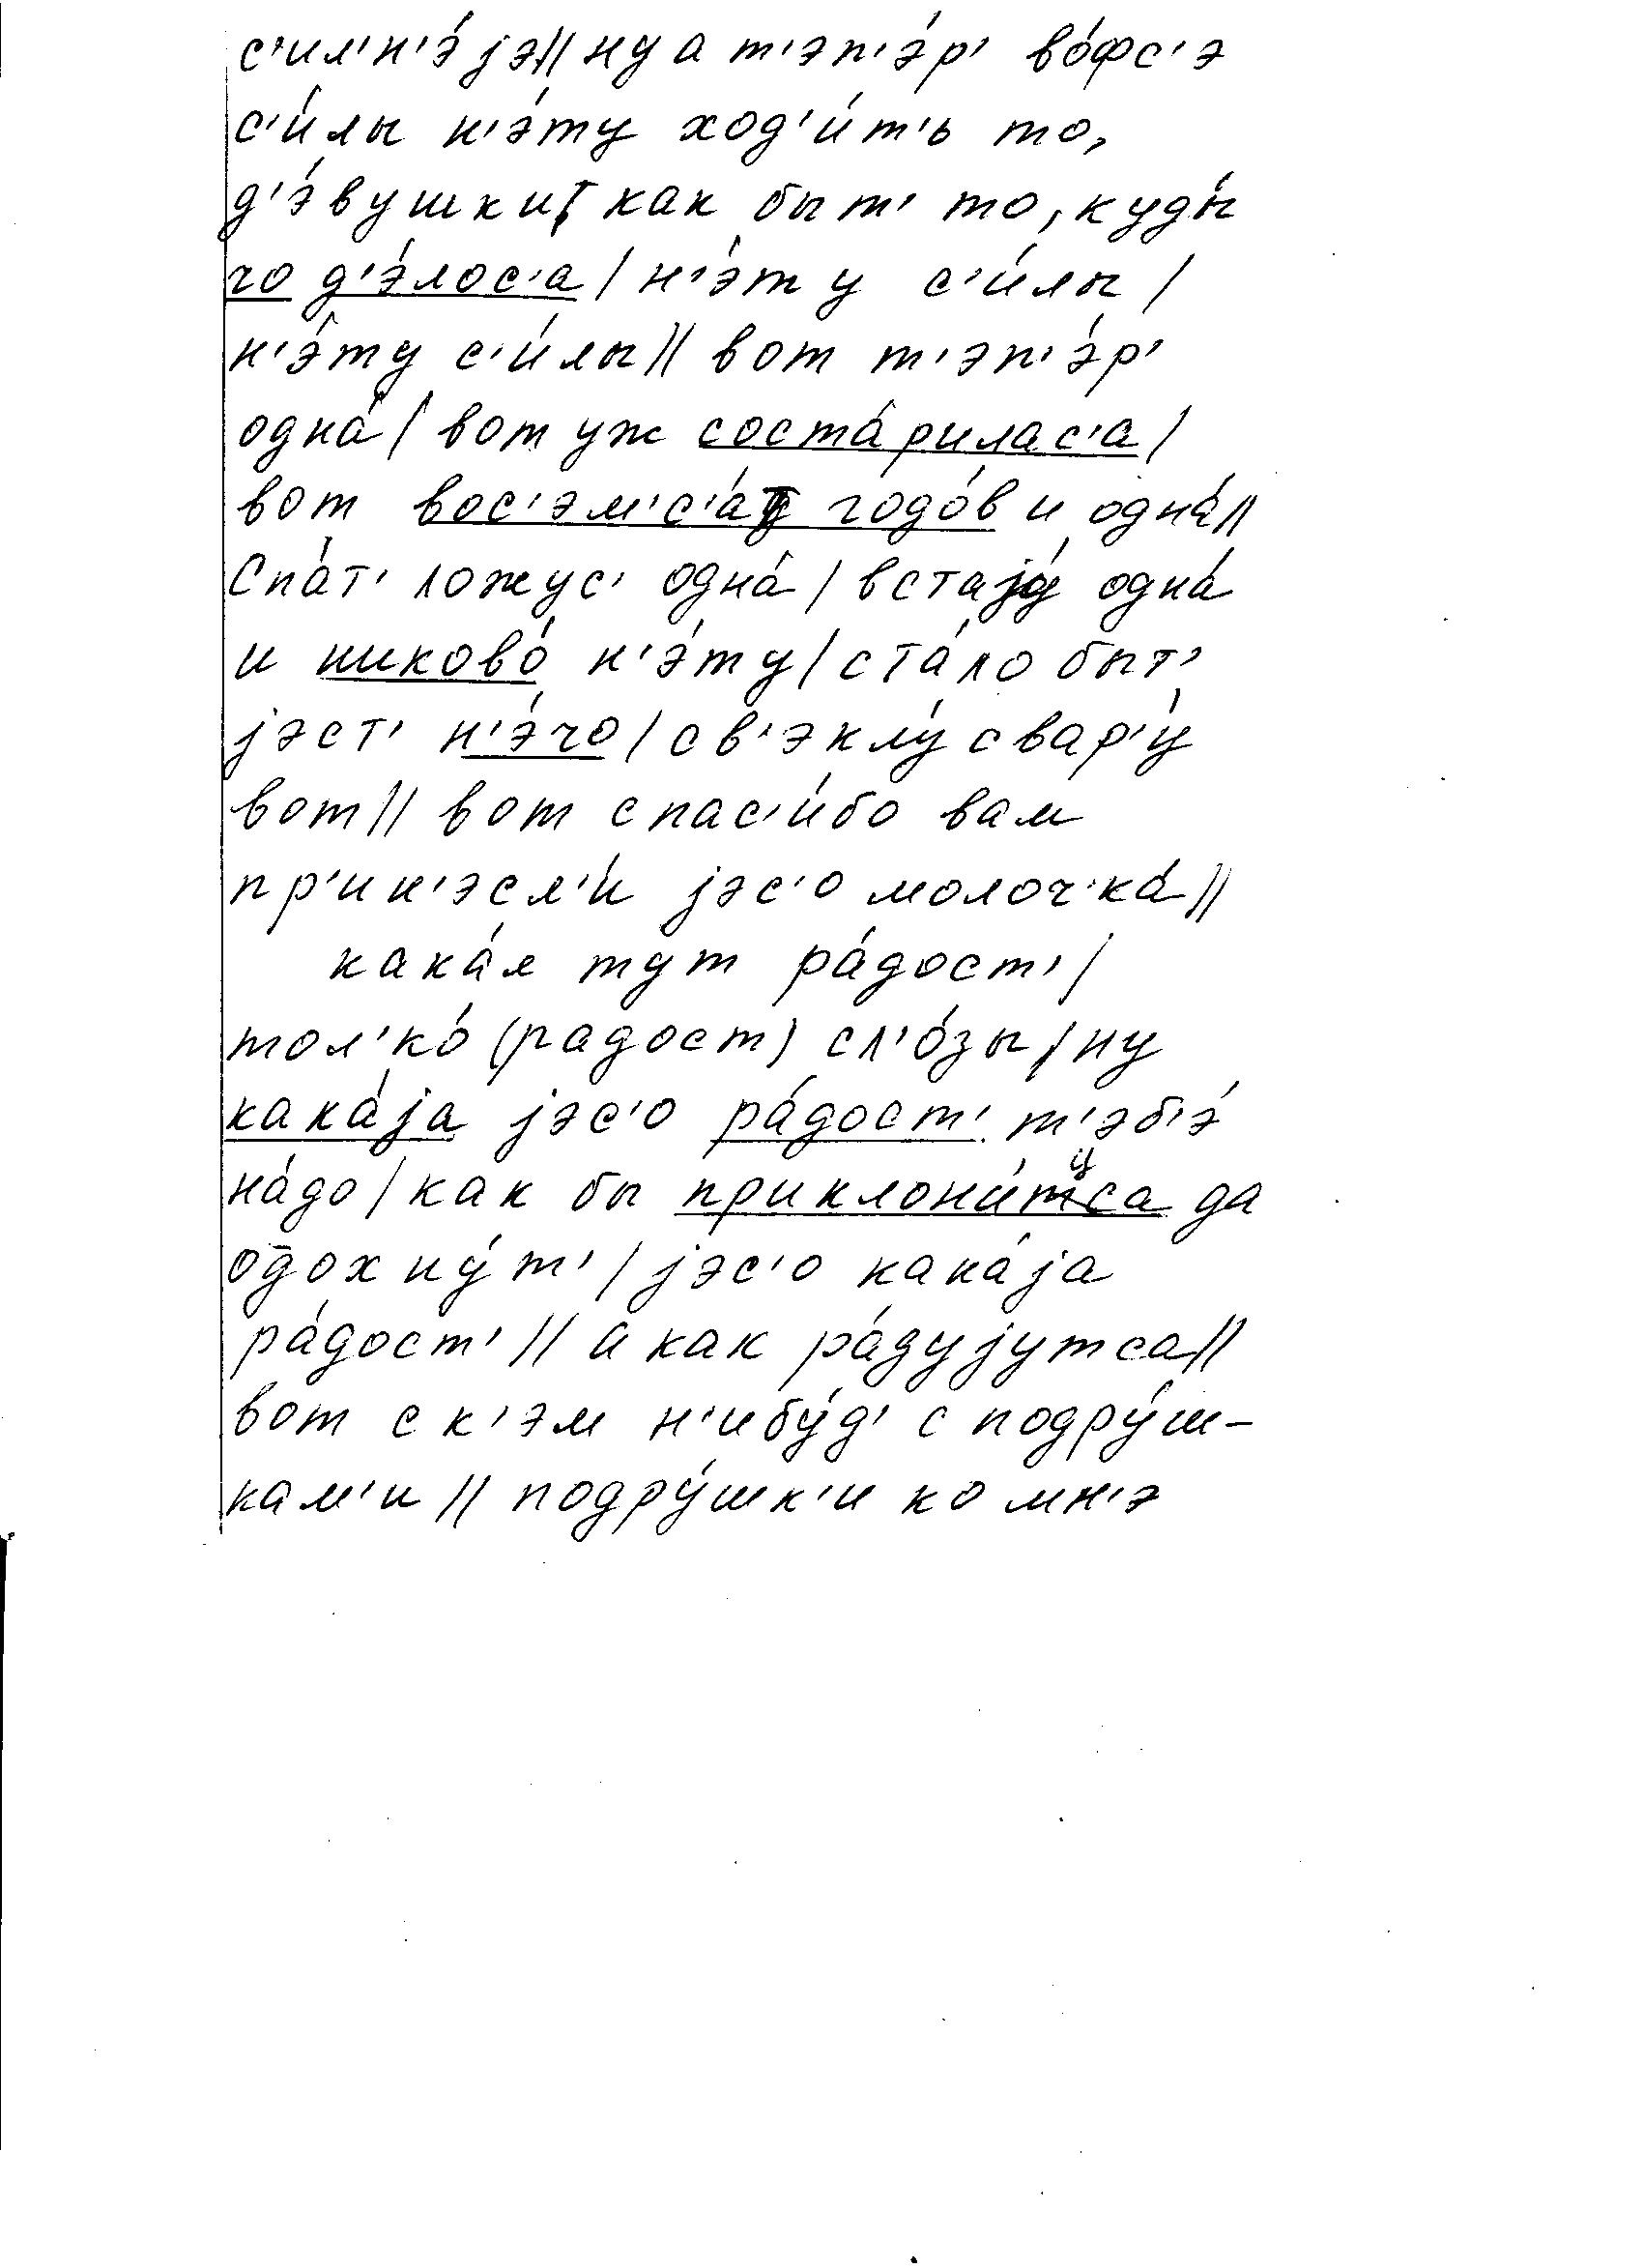 с'ил'н'э́jэ// ну а т'эп'э́р' во́фс'э
с'и́лы н'э́ту ход'и́т'ь то,
д'э́вушки, как быт' то, куды́
чо д'э́лос'а / н'э́ту с'и́лы /
н'э́ту с'и́лы // вот т'эп'э́р'
одна́ / вот уж соста́рилас'а /
вот вос'эм'с'а́т годо́в и одна́ //
Спа́т' ложус' одна́ / встаjу́ одна́
и никово́ н'э́ту / ста́ло быт'
jэст' н'э́чо / св'эклу́ свар'у́
вот // вот спас'и́бо вам
пр'ин'эсл'и́ jэс'о молоч'ка́ //
кака́я тут ра́дост' /
тол'ко́ (радост) сл'о́зы / ну
кака́jа jэс'о ра́дост' т'эб'э́
на́до / как бы приклони́тца да
одохну́т' / jэс'о кака́jа
ра́дост' // а как ра́дуjутса //
вот с к'эм н'ибу́д' с подру́ш-
кам'и // подру́шк'и ко мн'э